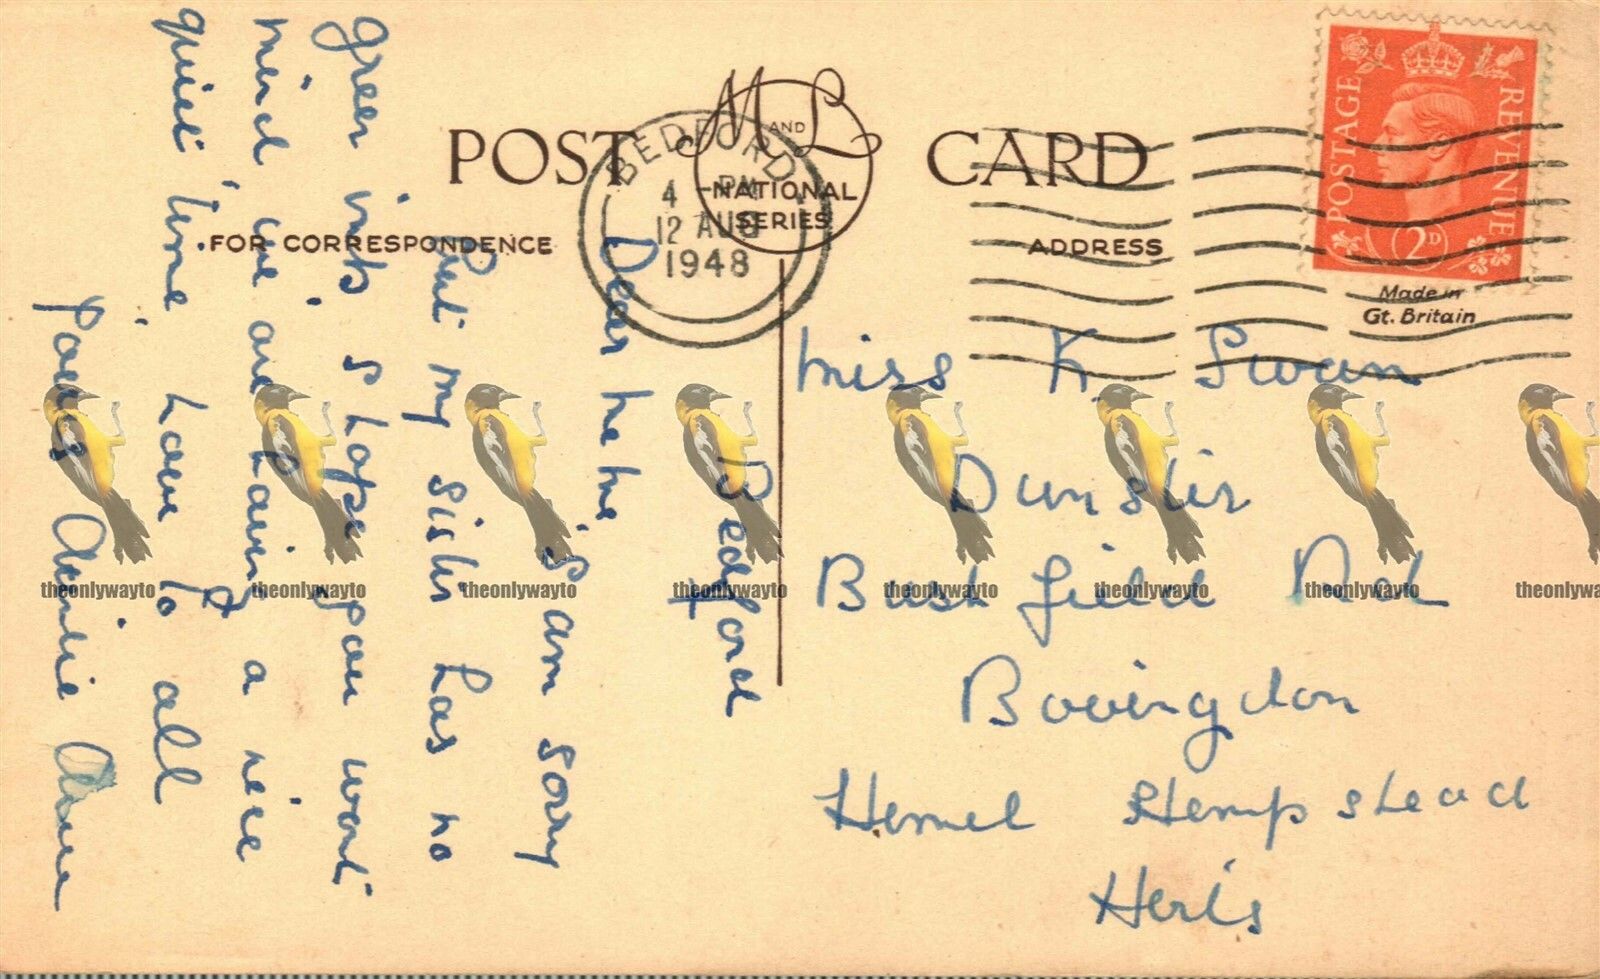 POST CARD
M AND L
NATIONAL
SERIES
FOR CORRESPONDENCE
ADDRESS
BEDFORD
4 PM
12 AUG
1948
POSTAGE
REVENUE
2D
Made in
Gt. Britain
Miss K. Swan
Bushfield Rd
Bovingdon
Hemel Hempstead
Herts
Bedford
Dear
I am sorry
but my sister has no
green inks I hope you wont
mind we are having a nice
quiet time Love to all
Yours
theonlywayto theonlywayto theonlywayto theonlywayto theonlywayto theonlywayto theonlywayto theonlywa